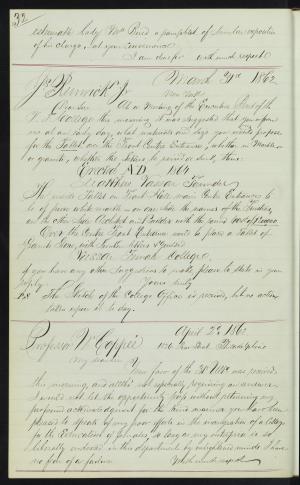 32
estimable lady Mrs Bird a pamphlet of similar
of his clergy, at your convenience
I am dear Sir with much respect
Jas Renwick Jr March 31st 1862
New York
Dear Sir At a meeting of the Executive Com of the
V. F. College this morning it was suggested that you inform
me at an early day, what materials and size you would propose
for the Tablet over the Front Centre Entrance, whether in Marble
or granite, whether the letters to be raised or sunk, thus:
Erected A.D. 1861.
Matthew Vassar Founder
The inside Tablets on Front Hall, main Centre Entrances to
be of fine white marble on one side the names of the Trustees
on the other side Architect and Builder with the words
Over the Centre Front Entrance outside to place a Tablet of
Granite Stone, with Similar letters & gilded
Vassar Female College.
if you have any other suggestions to make please to state in your
reply Yours truly
P.S. The Sketch of the College Office is received, but no action
taken upon it to day.
Professor H. Coppée April 2d 1862
1026 Philadelphia
My dear Sir
Your favor of the 31st Ulto was received
this morning, and altho not specially requiring an answer
I would not let the opportunity pass without returning my
profound acknowledgment for the kind manner you have been
pleased to speak of my poor efforts in the inauguration of a College
for the Education of Females, so long as my enterprise is so
liberally endorsed in this department by enlightened minds I have
no fear of a failure
With much respect